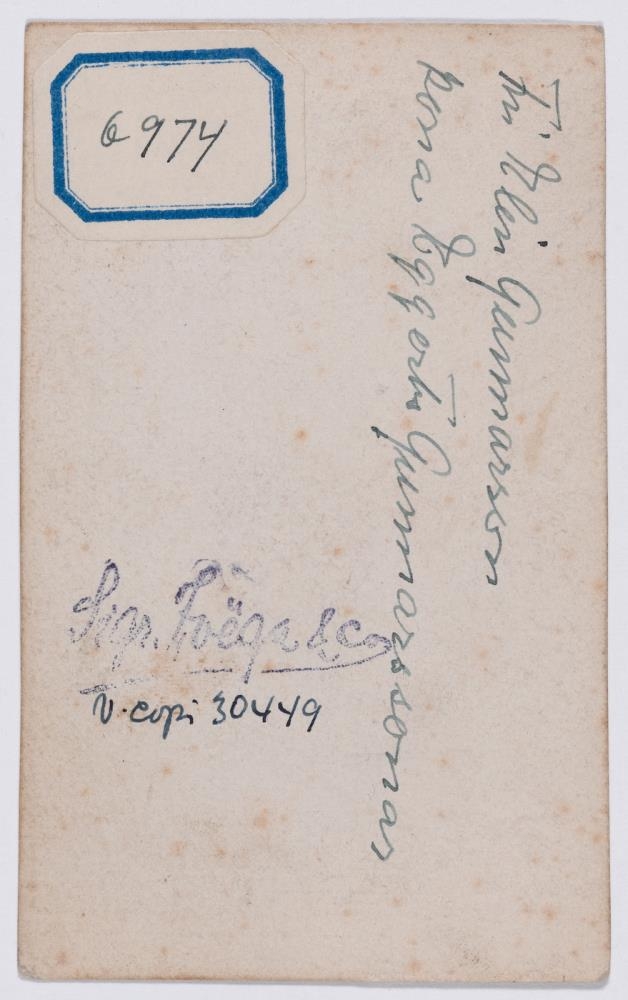 6974
Frú Elin Gunnarsson
kona Eggerts Gunnarssonar
Sigr. Zoëga & Co
V. copi 30449